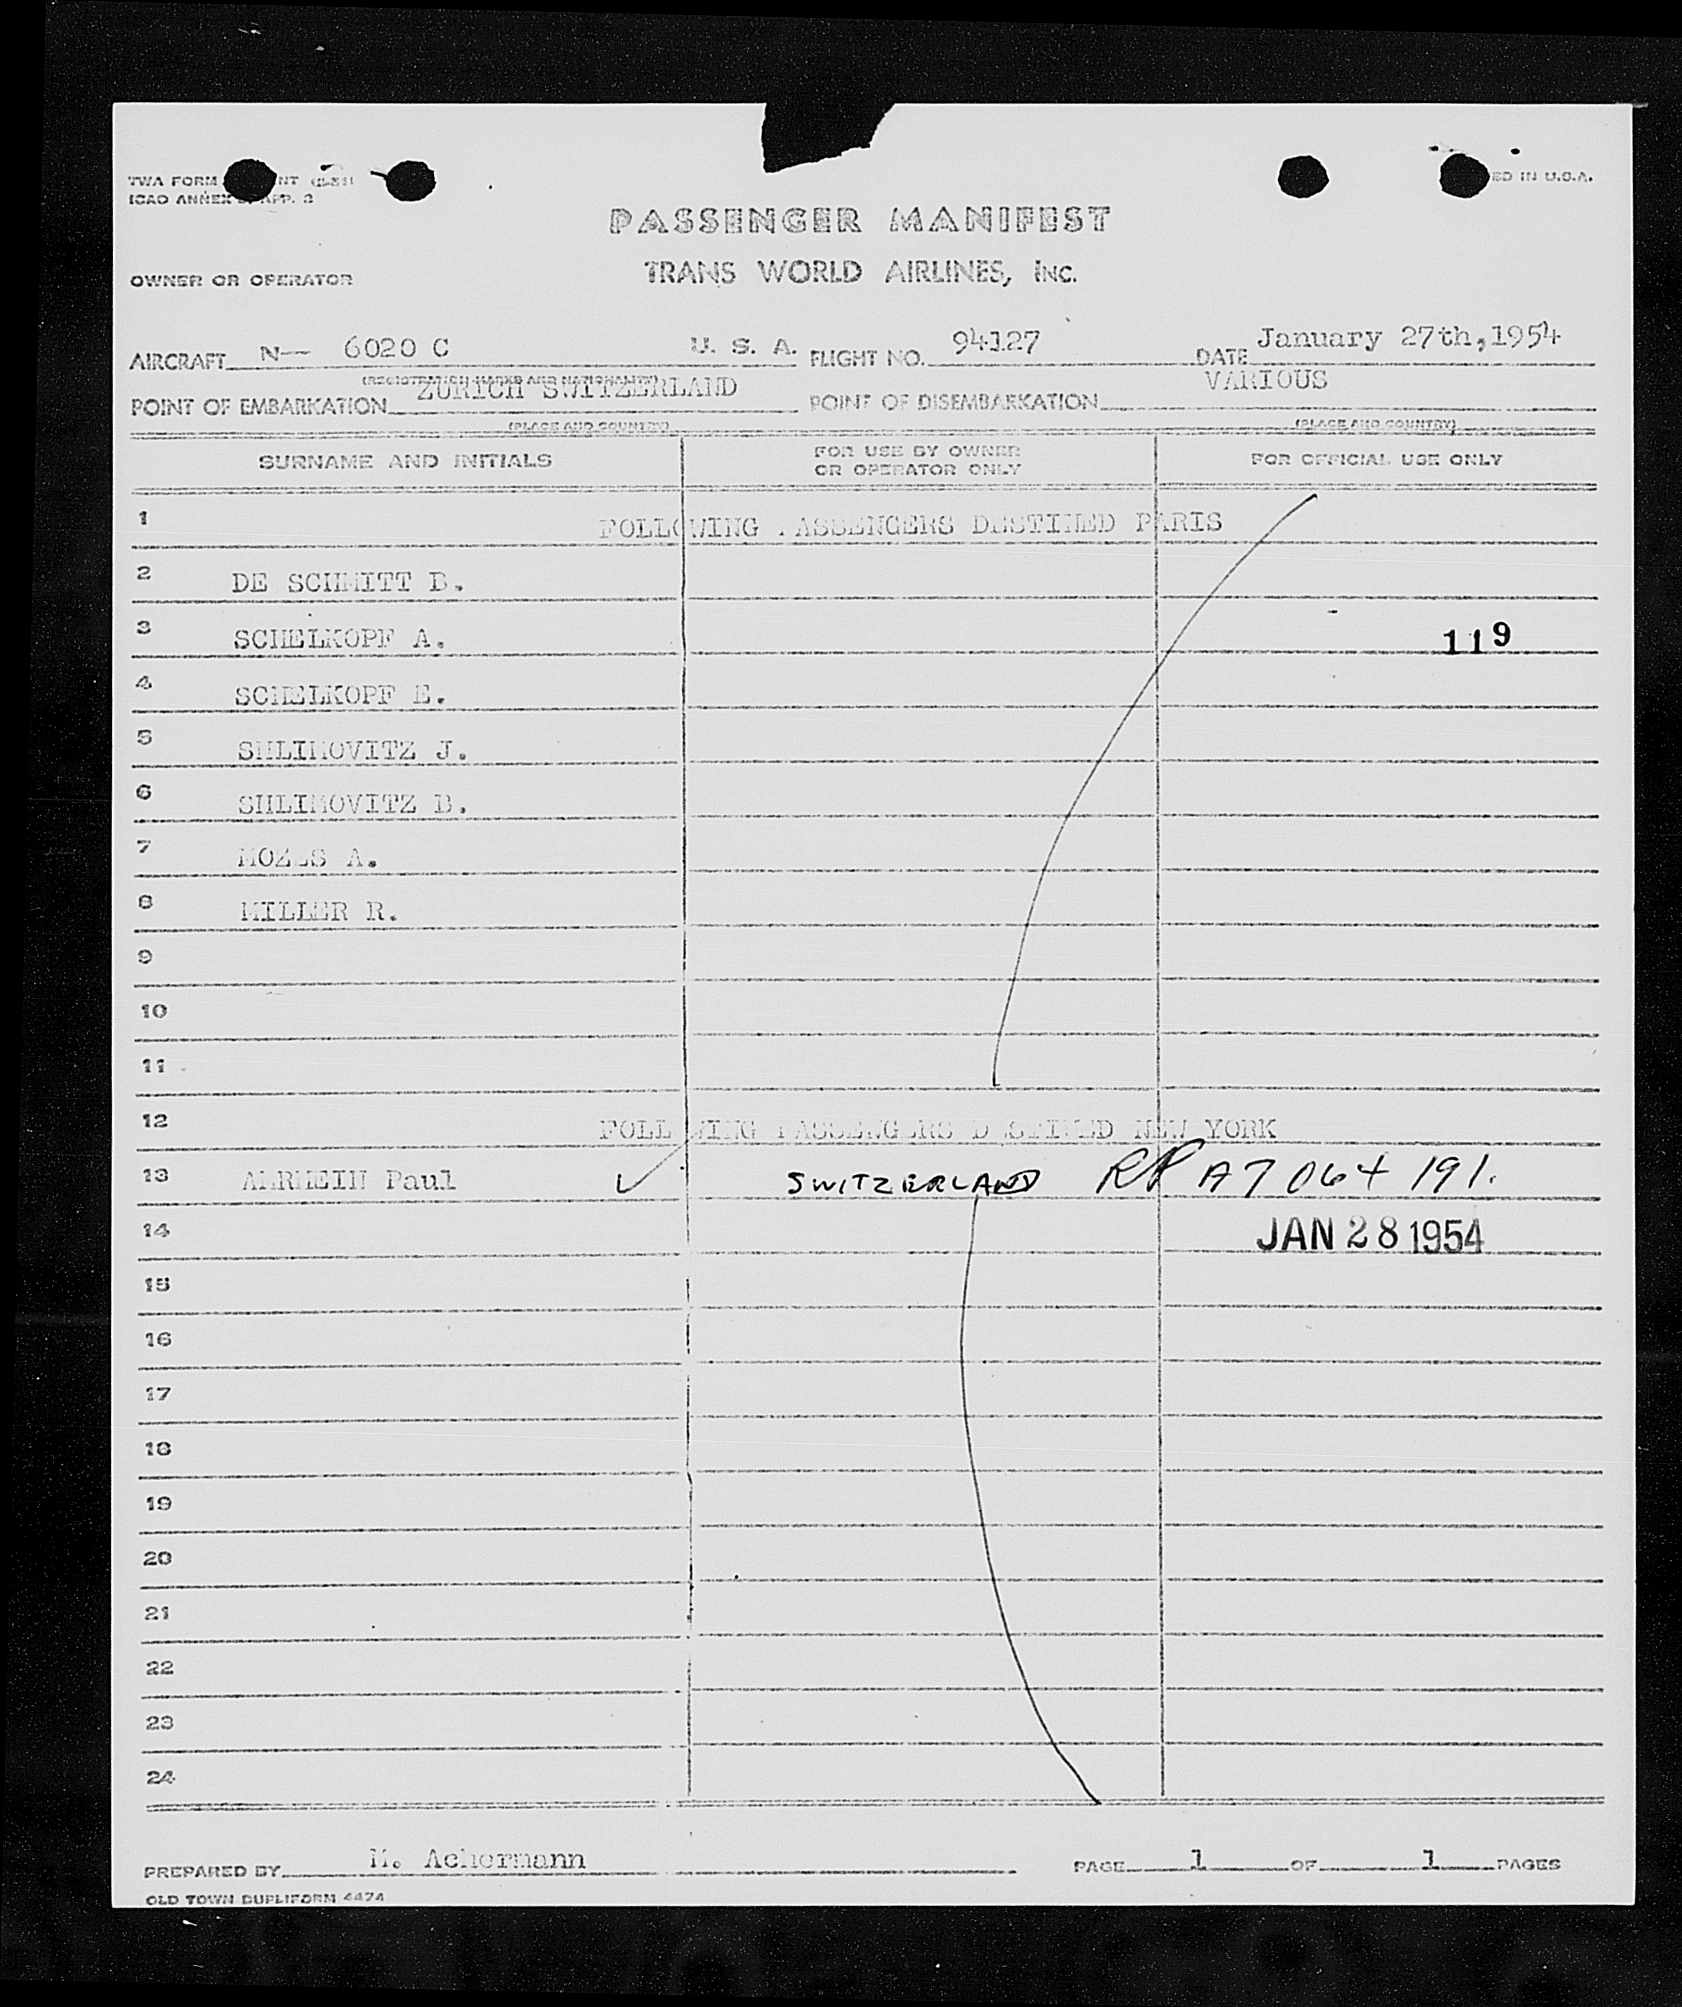 TWA FORM
ICAO ANNEX 9, APP. 3
PASSENGER MANIFEST
OWNER OR OPERATOR TRANS WORLD AIRLINES, INC.
AIRCRAFT N— 6020 C U. S. A. FLIGHT NO. 94127 DATE January 27th,1954
(REGISTRATION MARKS AND NATIONALITY)
POINT OF EMBARKATION ZURICH SWITZERLAND POINT OF DISEMBARKATION VARIOUS
(PLACE AND COUNTRY) (PLACE AND COUNTRY)
SURNAME AND INITIALS FOR USE BY OWNER OR OPERATOR ONLY FOR OFFICIAL USE ONLY
1 FOLLOWING PASSENGERS DESTINED PARIS
2 DE SCHMITT B.
3 SCHELKOPF A. 119
4 SCHELKOPF E.
5 SHLIMOVITZ J.
6 SHLIMOVITZ B.
7 MOZES A.
8 MILLER R.
9
10
11
12 FOLLOWING PASSENGERS DESTINED NEW YORK
13 AMRHEIN Paul SWITZERLAND RP A7 064 191.
14 JAN 28 1954
15
16
17
18
19
20
21
22
23
24
PREPARED BY M. Achermann PAGE 1 OF 1 PAGES
OLD TOWN DUPLIFORM 4474